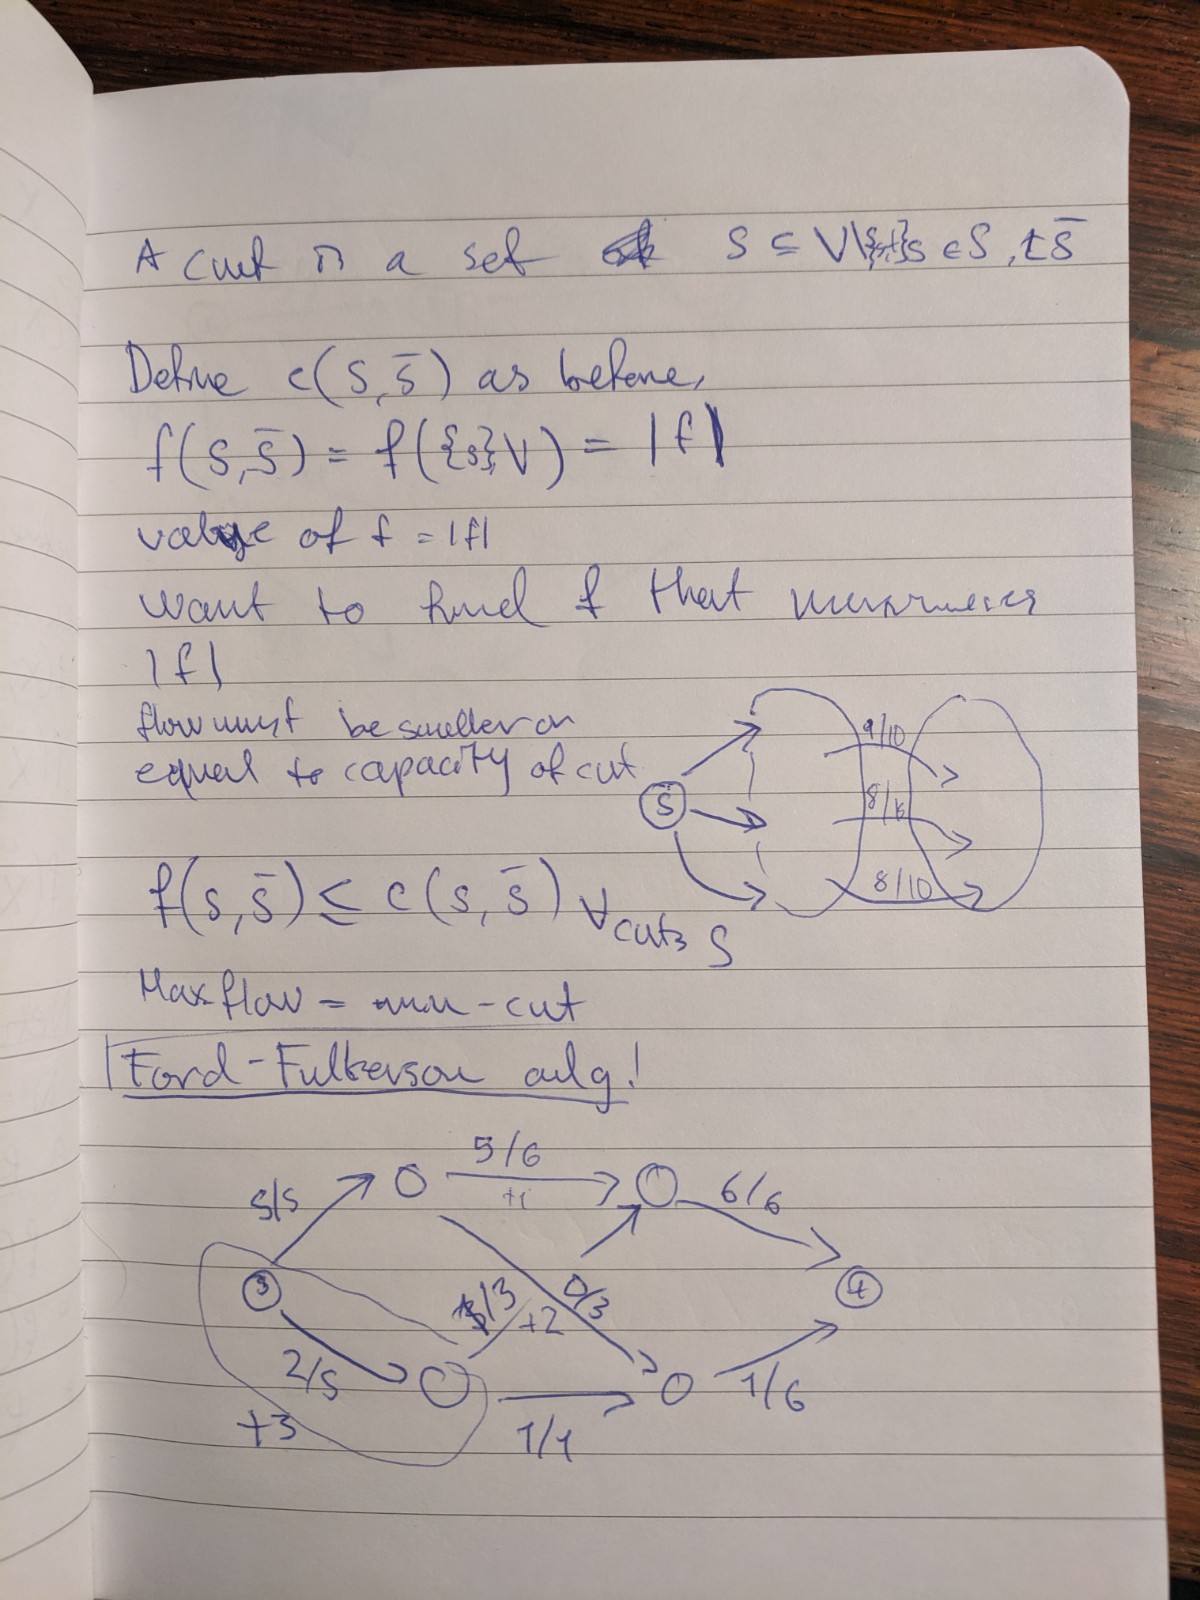 A cut is a set S ⊆ V\{s,t} s ∈ S, t S̄
Define c(S, S̄) as before,
f(S, S̄) = f({s}, V) = |f|
value of f = |f|
want to find f that maximizes
|f|
flow must be smaller or
equal to capacity of cut
S
9/10
8/16
8/10
f(s, s̄) ≤ c(s, s̄) ∀ cuts S
Max flow = min-cut
Ford-Fulkerson alg!
5/6
+1
5/5
6/6
s
/3
+2
0/3
t
2/5
+3
1/1
1/6